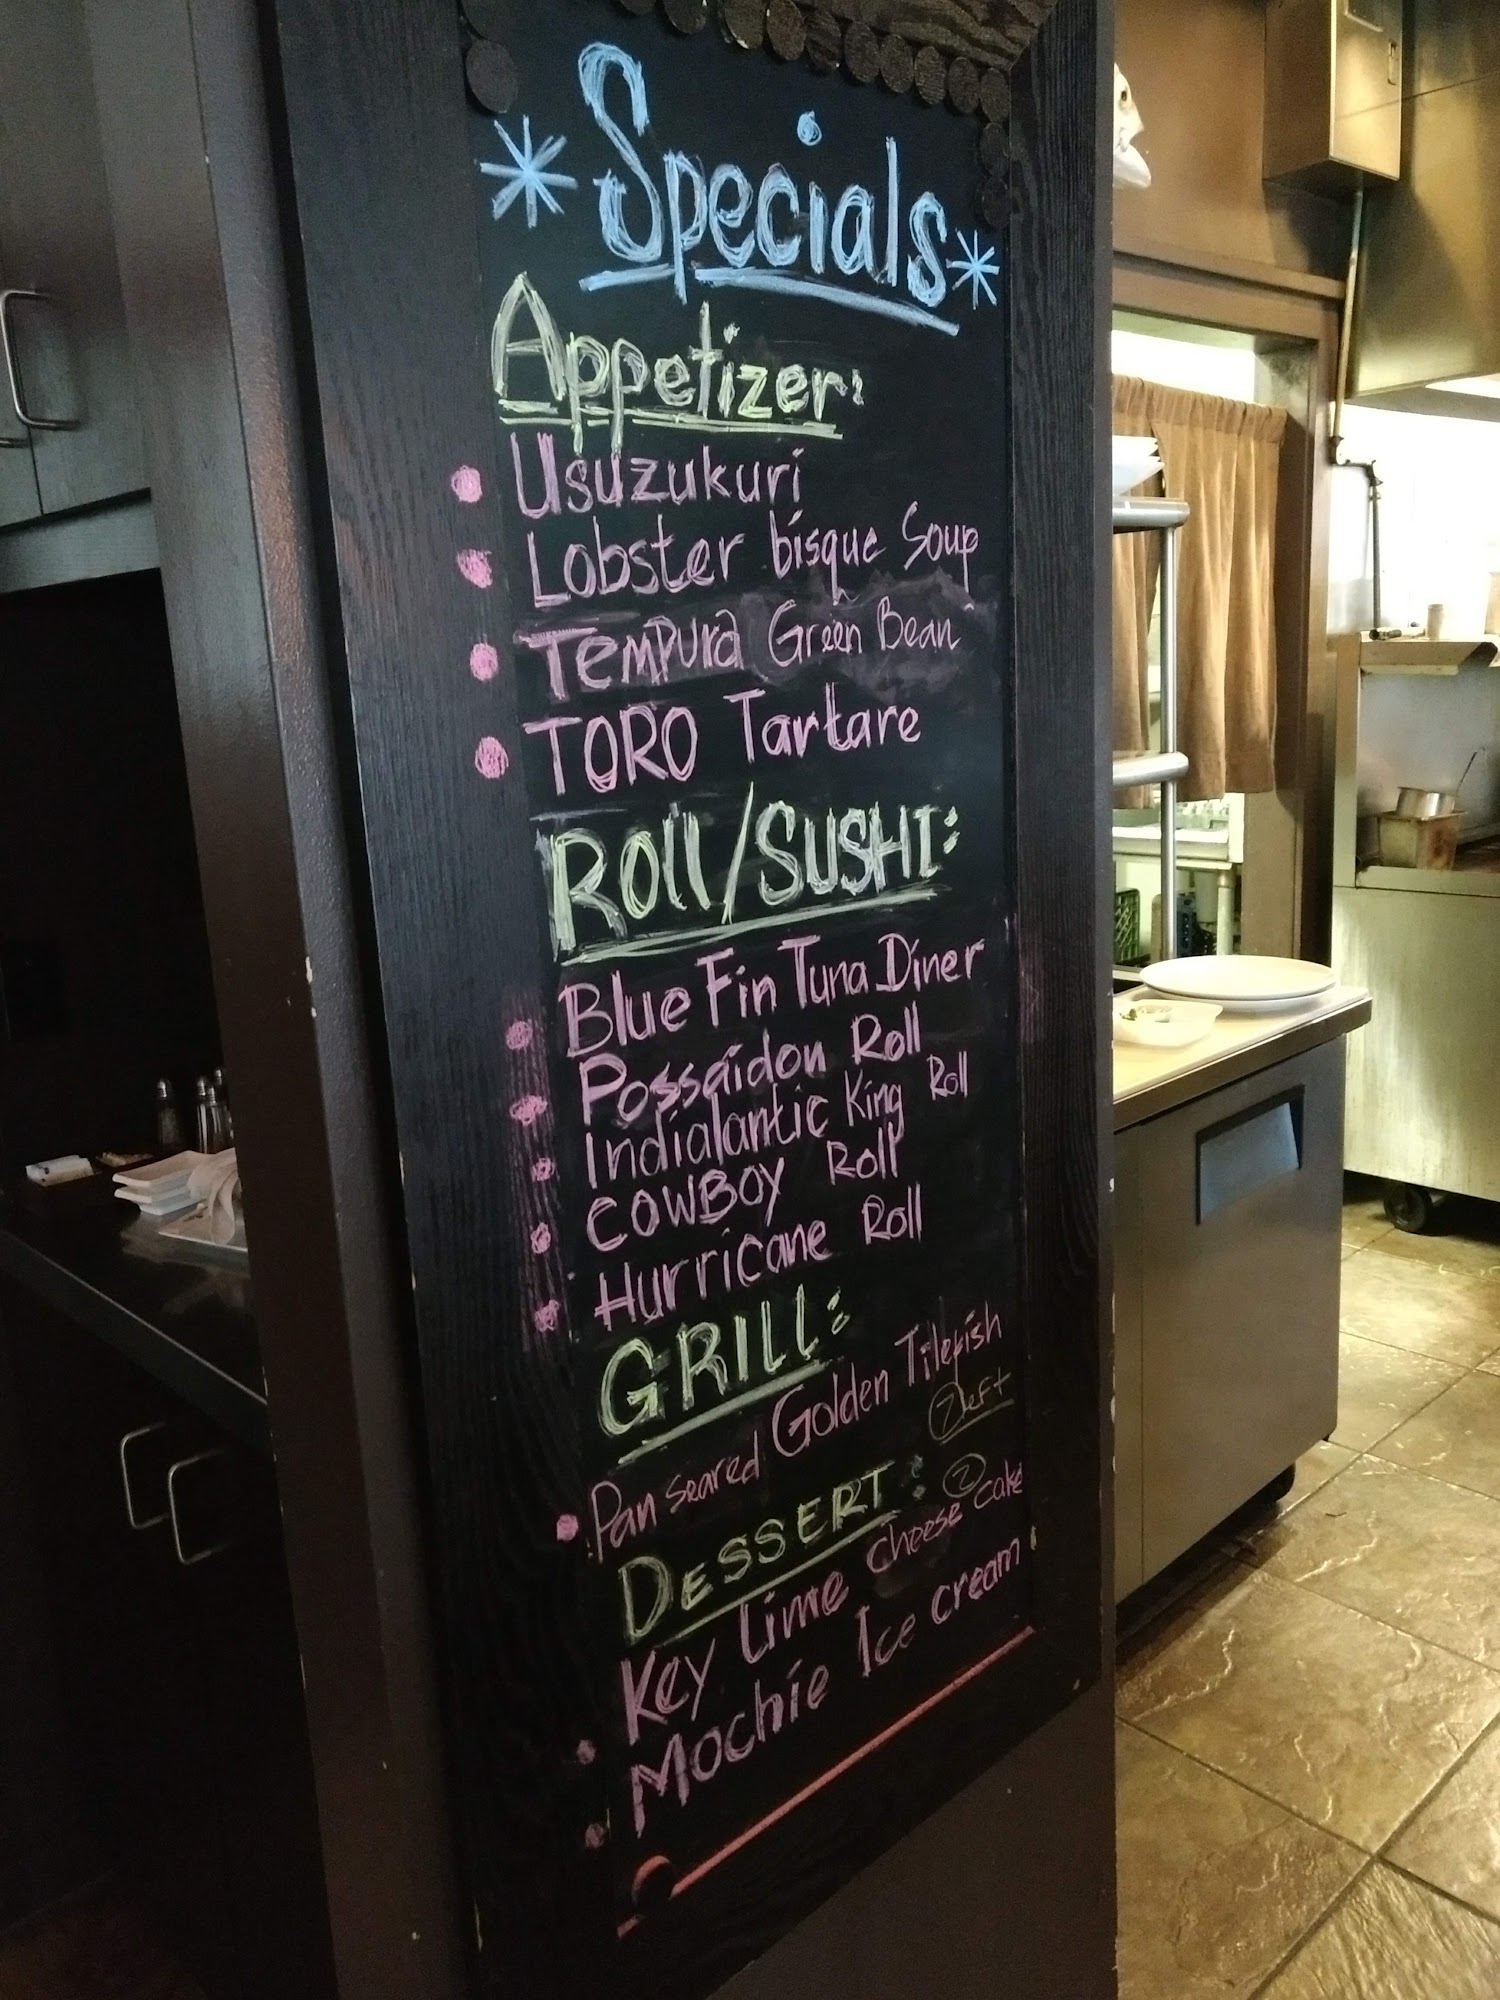 * Specials *
Appetizer:
• Usuzukuri
• Lobster bisque Soup
• Tempura Green Bean
• TORO Tartare
Roll/SUSHI:
• Blue Fin Tuna Diner
• Possaidon Roll
• Indialantic King Roll
• COWBOY Roll
• Hurricane Roll
GRILL:
• Pan seared Golden Tilefish
2 left
DESSERT: 2
• Key lime cheese cake
• Mochie Ice cream